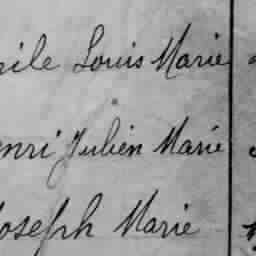 rile Louis Marie
enri Julien Marie
Joseph Marie